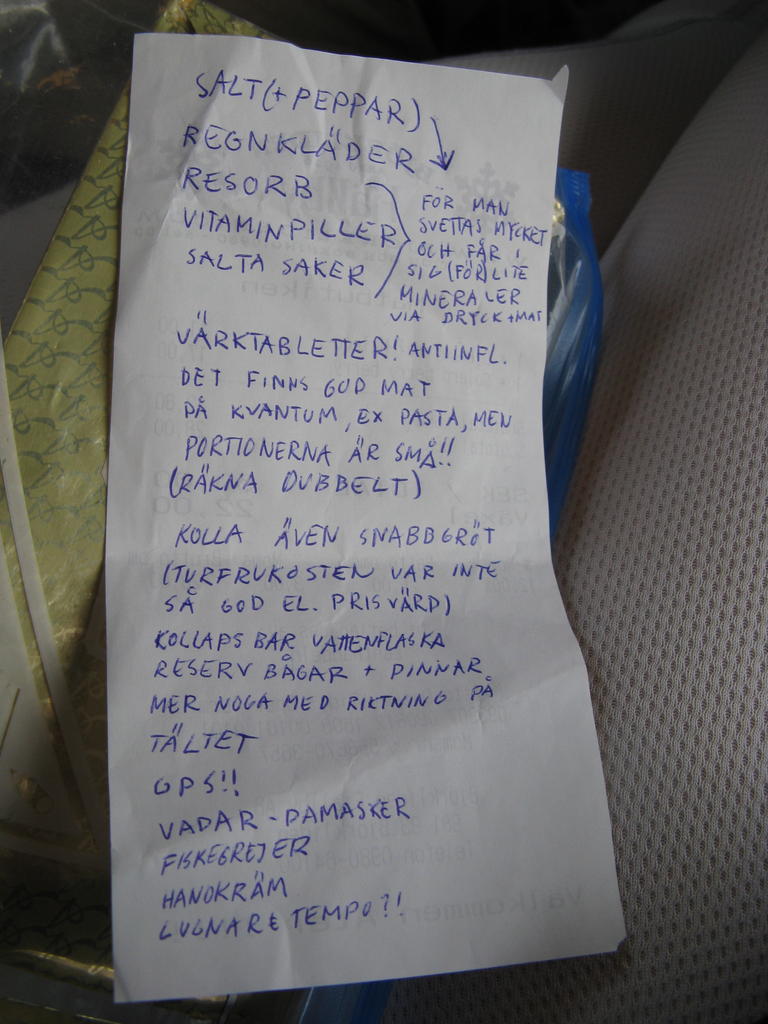 SALT (+ PEPPAR)
REGNKLÄDER
RESORB
VITAMINPILLER
SALTA SAKER
FÖR MAN
SVETTAS MYCKET
OCH FÅR I
SIG (FÖR) LITE
MINERALER
VIA DRYCK + MAT
VÄRKTABLETTER! ANTIINFL.
DET FINNS GOD MAT
PÅ KVANTUM, EX PASTA, MEN
PORTIONERNA ÄR SMÅ!!
(RÄKNA DUBBELT)
KOLLA ÄVEN SNABBGRÖT
(TURFRUKOSTEN VAR INTE
SÅ GOD EL. PRISVÄRD)
KOLLAPSBAR VATTENFLASKA
RESERV BÅGAR + PINNAR
MER NOGA MED RIKTNING PÅ
TÄLTET
GPS!!
VADAR-DAMASKER
FISKEGREJER
HANDKRÄM
LUGNARE TEMPO?!